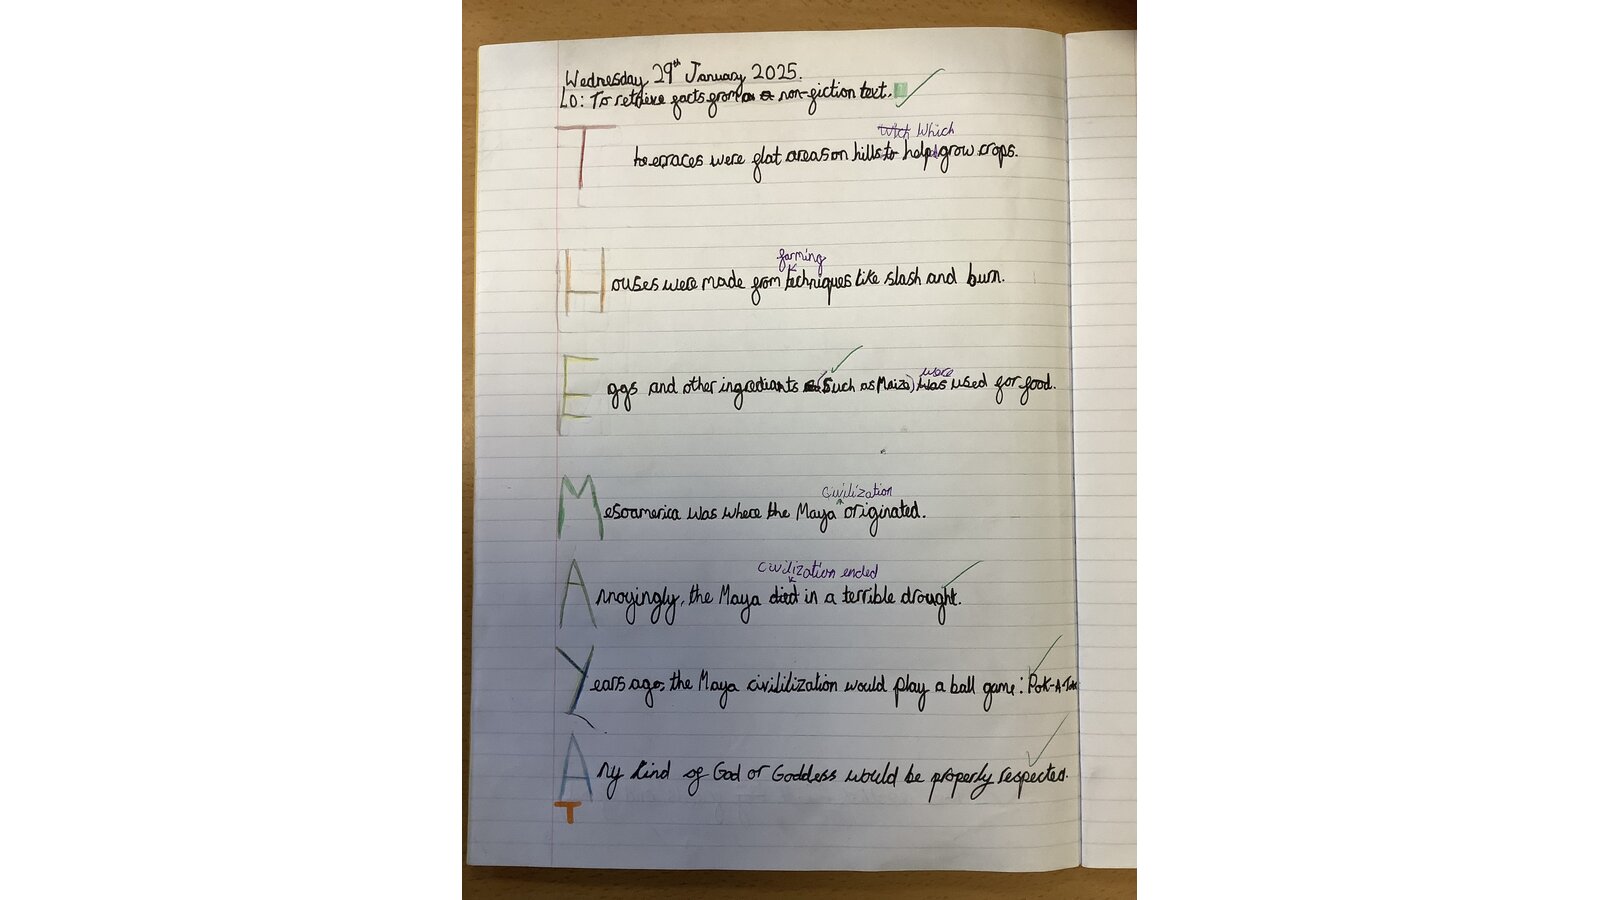 Wednesday 29th January 2025.
LO: To retrieve facts from a non-fiction text.
Wich Which
T he erraces were flat areas on hills to helped grow crops.
farming
Houses were made from techniques like slash and burn.
were
Eggs and other ingrediants (Such as Maize) was used for food.
civilization
Mesoamerica was where the Maya originated.
civilization ended
Annoyingly, the Maya died in a terrible drought.
Years ago, the Maya civililization would play a ball game: Pok-A-Tok
Any kind of God or Goddess would be properly respected.
T